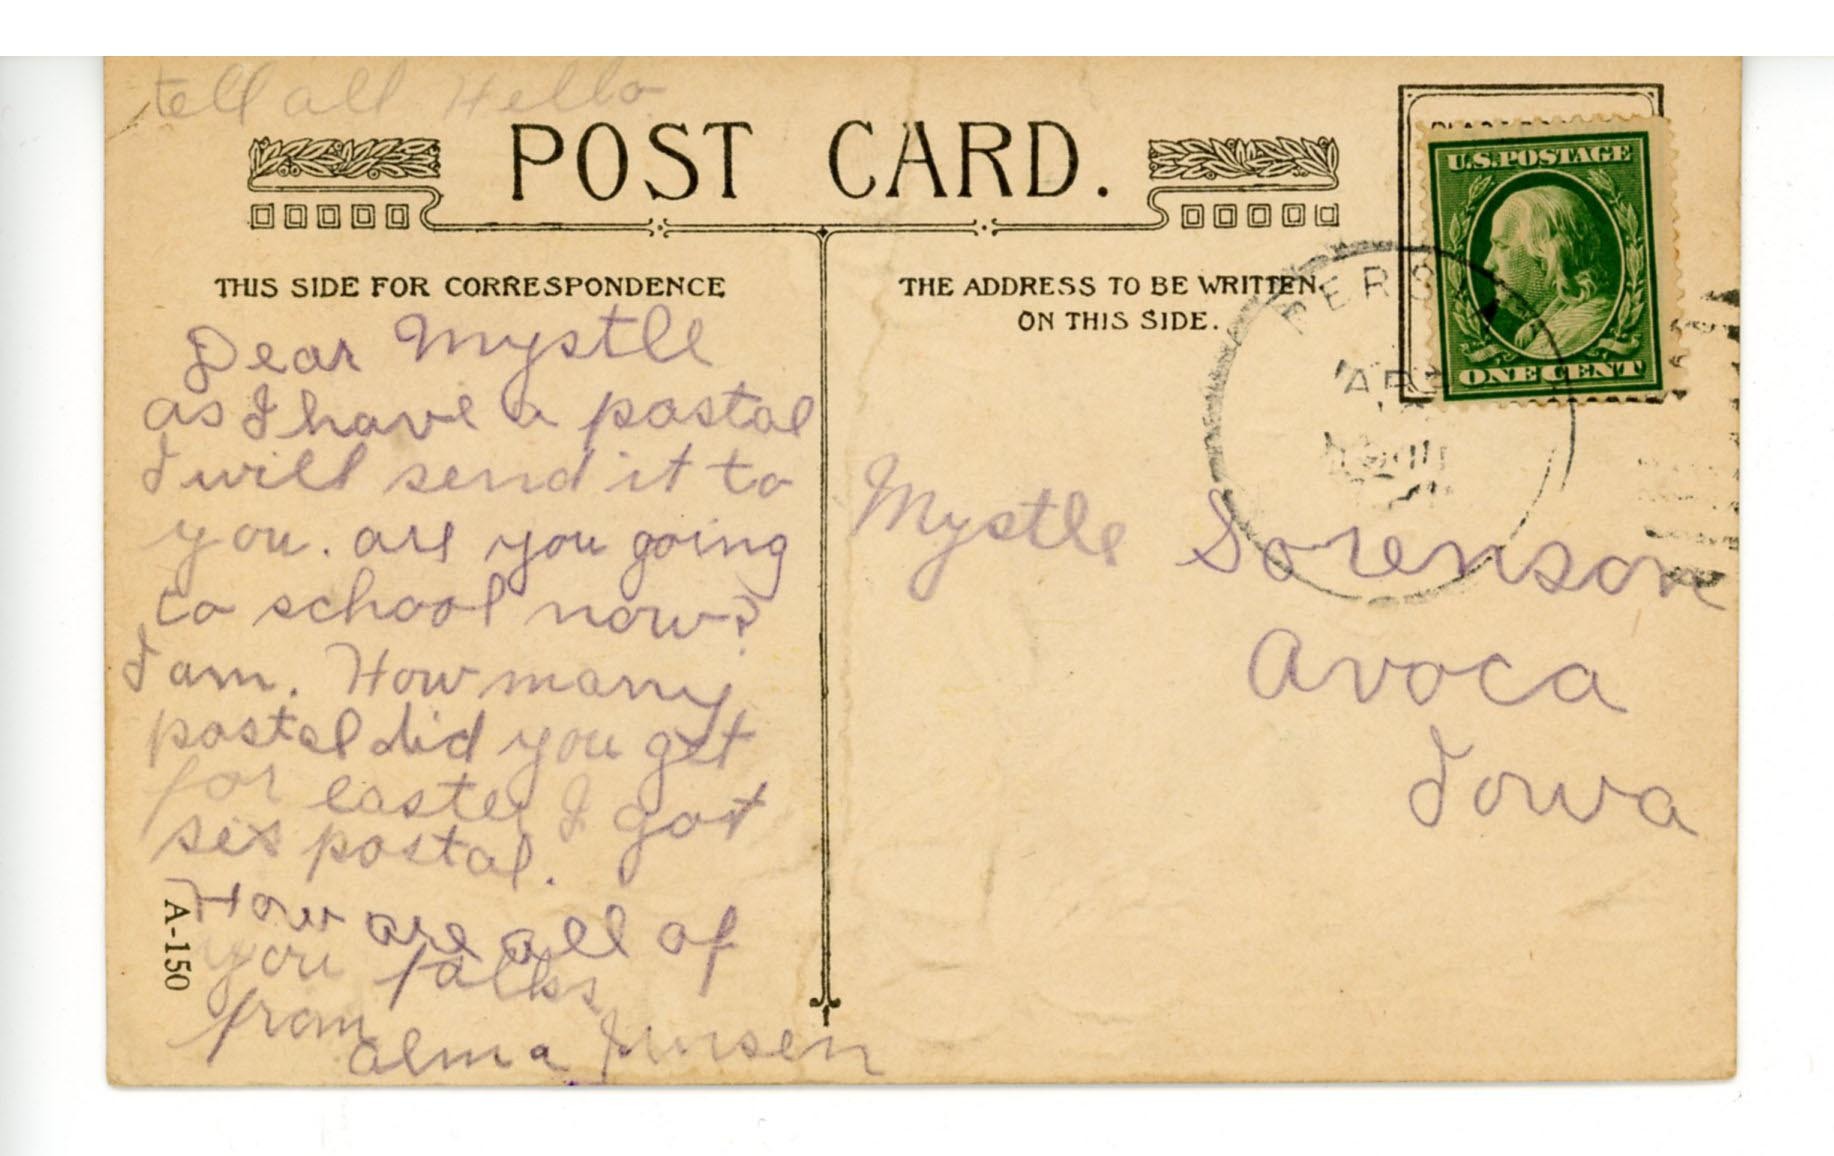 tell all Hello
POST CARD.
THIS SIDE FOR CORRESPONDENCE
Dear Mystle
as I have a postal
I will send it to
you. are you going
to school now?
I am. How many
postal did you get
for easter I got
six postal.
How are all of
you folks
from
alma Jensen
A-150
THE ADDRESS TO BE WRITTEN
ON THIS SIDE.
U.S.POSTAGE
ONE CENT
PERSIA
APR
Mystle Sorenson
Avoca
Iowa